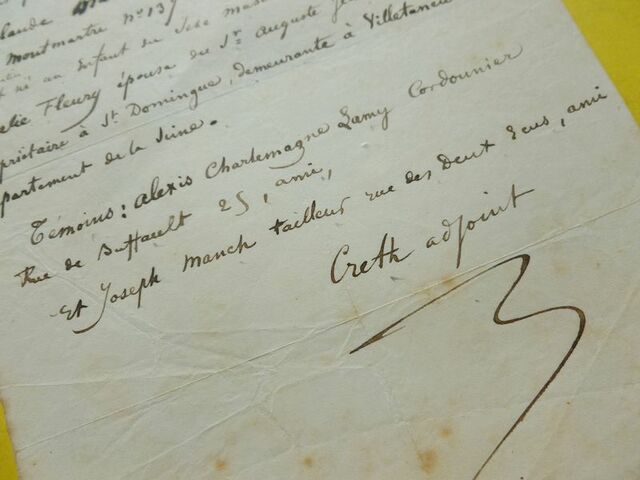 montmartre n° 139
né un Enfant du Sexe mas
Fleury épouse du Sr. Auguste
priétaire à St. Domingue, demeurante à Villetaneu
partement de la Seine.
Témoins: Alexis Charlemagne Lamy Cordonnier
Rue de Buffault 25, ami,
Et Joseph Manch tailleur rue des Deux Ecus, ami
Creth adjoint